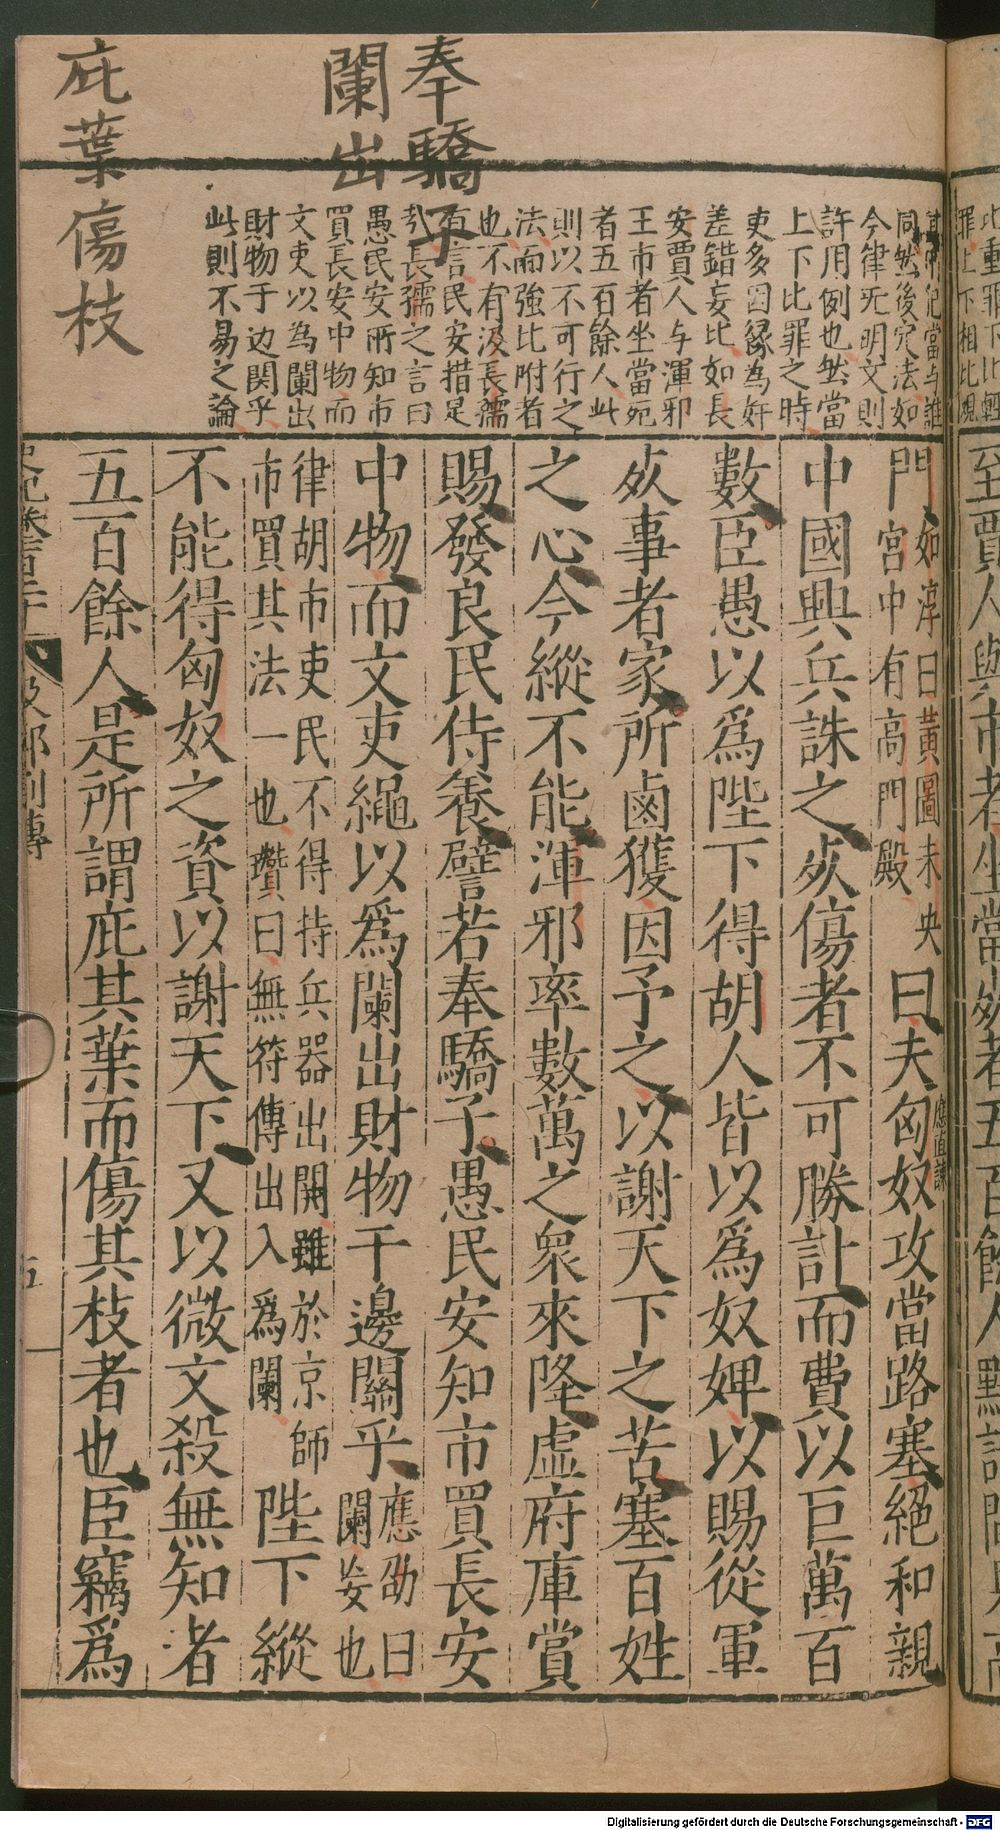 奉驕子
闌出
庇葉傷枝
罪上下相比規
其中犯當与誰
同然後定法如
今律旡明文則
許用例也然當
上下比罪之時
吏多因緣為奸
差錯妄比如長
安賈人与渾邪
王市者坐當死
者五百餘人此
則以不可行之
法而強比附者
也不有汲長孺
有言民安措足
㢤長孺之言曰
愚民安所知市
買長安中物而
文吏以為闌出
財物于边関乎
此則不易之論
至賈人與市者坐當死者五百餘人黯請間見高
門如淳曰黃圖未央
宮中有高門殿
曰夫匈奴攻當路塞絕和親
應直諫
中國興兵誅之死傷者不可勝計而費以巨萬百
數臣愚以爲陛下得胡人皆以爲奴婢以賜從軍
死事者家所鹵獲因予之以謝天下之苦塞百姓
之心今縱不能渾邪率數萬之衆來降虛府庫賞
賜發良民侍養譬若奉驕子愚民安知市買長安
中物而文吏繩以爲闌出財物于邊關乎應劭曰闌妄也
律胡市吏民不得持兵器出關雖於京師
市買其法一也瓚曰無符傳出入爲闌
陛下縱
不能得匈奴之資以謝天下又以微文殺無知者
五百餘人是所謂庇其葉而傷其枝者也臣竊爲
Digitalisierung gefördert durch die Deutsche Forschungsgemeinschaft - DFG